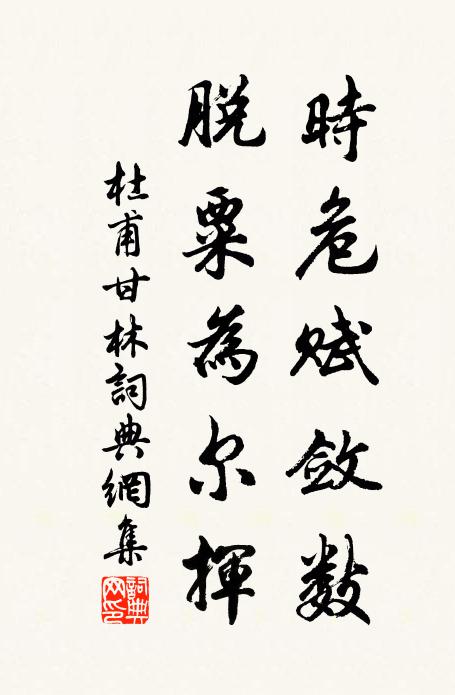 時危赋斂数
脫粟為尔揮
杜甫甘林詞典網集
詞典網印